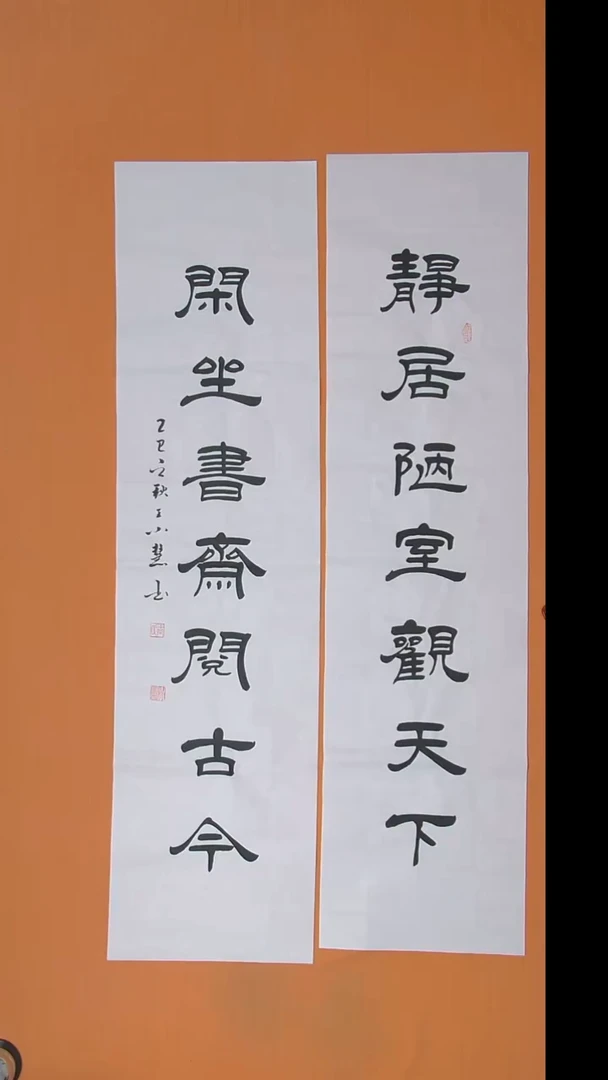 靜居陋室觀天下
閑坐書齋閱古今
乙巳立秋王小慧书